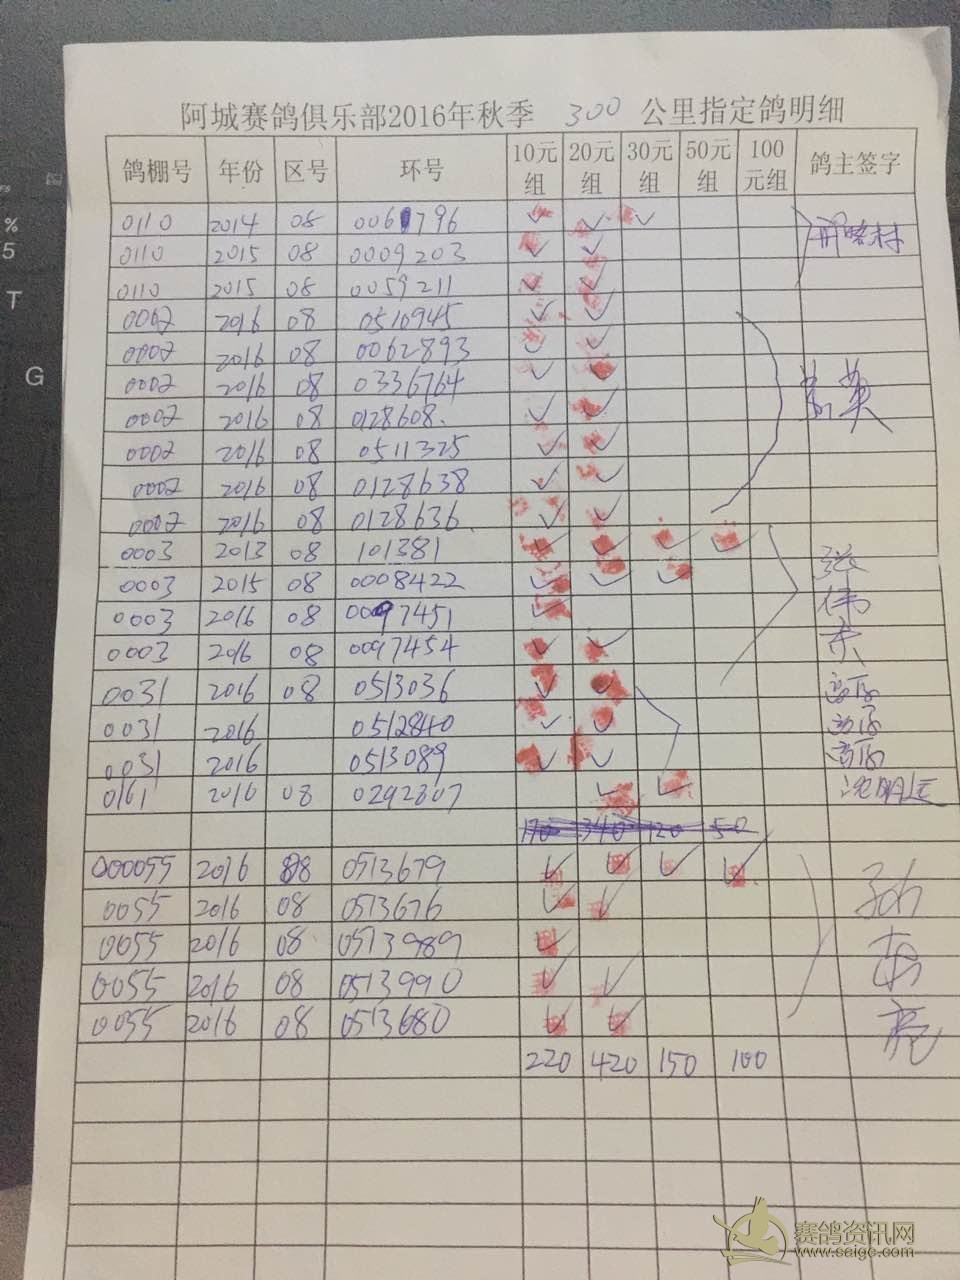 阿城赛鸽俱乐部2016年秋季 300 公里指定鸽明细
鸽棚号 年份 区号 环号 10元组 20元组 30元组 50元组 100元组 鸽主签字
0110 2014 08 0061796 ✓ ✓ ✓
0110 2015 08 0009203 ✓ ✓
0110 2015 08 0059211 ✓ ✓
0002 2016 08 0510945 ✓ ✓
0002 2016 08 0062893 ✓ ✓
0002 2016 08 0336764 ✓ ✓
0002 2016 08 0128608. ✓ ✓ 英
0002 2016 08 0511325 ✓ ✓
0002 2016 08 0128638 ✓ ✓
0002 2016 08 0128636. ✓ ✓
0003 2013 08 101381 ✓ ✓ ✓ ✓ 张
0003 2015 08 0008422 ✓ ✓ ✓ 伟
0003 2016 08 0097451 ✓
0003 2016 08 0097454 ✓ ✓
0031 2016 08 0513036 ✓ ✓
0031 2016 0512840 ✓ ✓
0031 2016 0513089 ✓ ✓
0161 2016 08 0292807 ✓ ✓
170 340 120 50
000055 2016 08 0513679 ✓ ✓ ✓ ✓
0055 2016 08 0513676 ✓ ✓ 孙
0055 2016 08 0513989 ✓
0055 2016 08 0513990 ✓ ✓
0055 2016 08 0513680 ✓ ✓ 亮
220 420 150 100
赛鸽资讯网
www.saigc.com
% 5
T
G